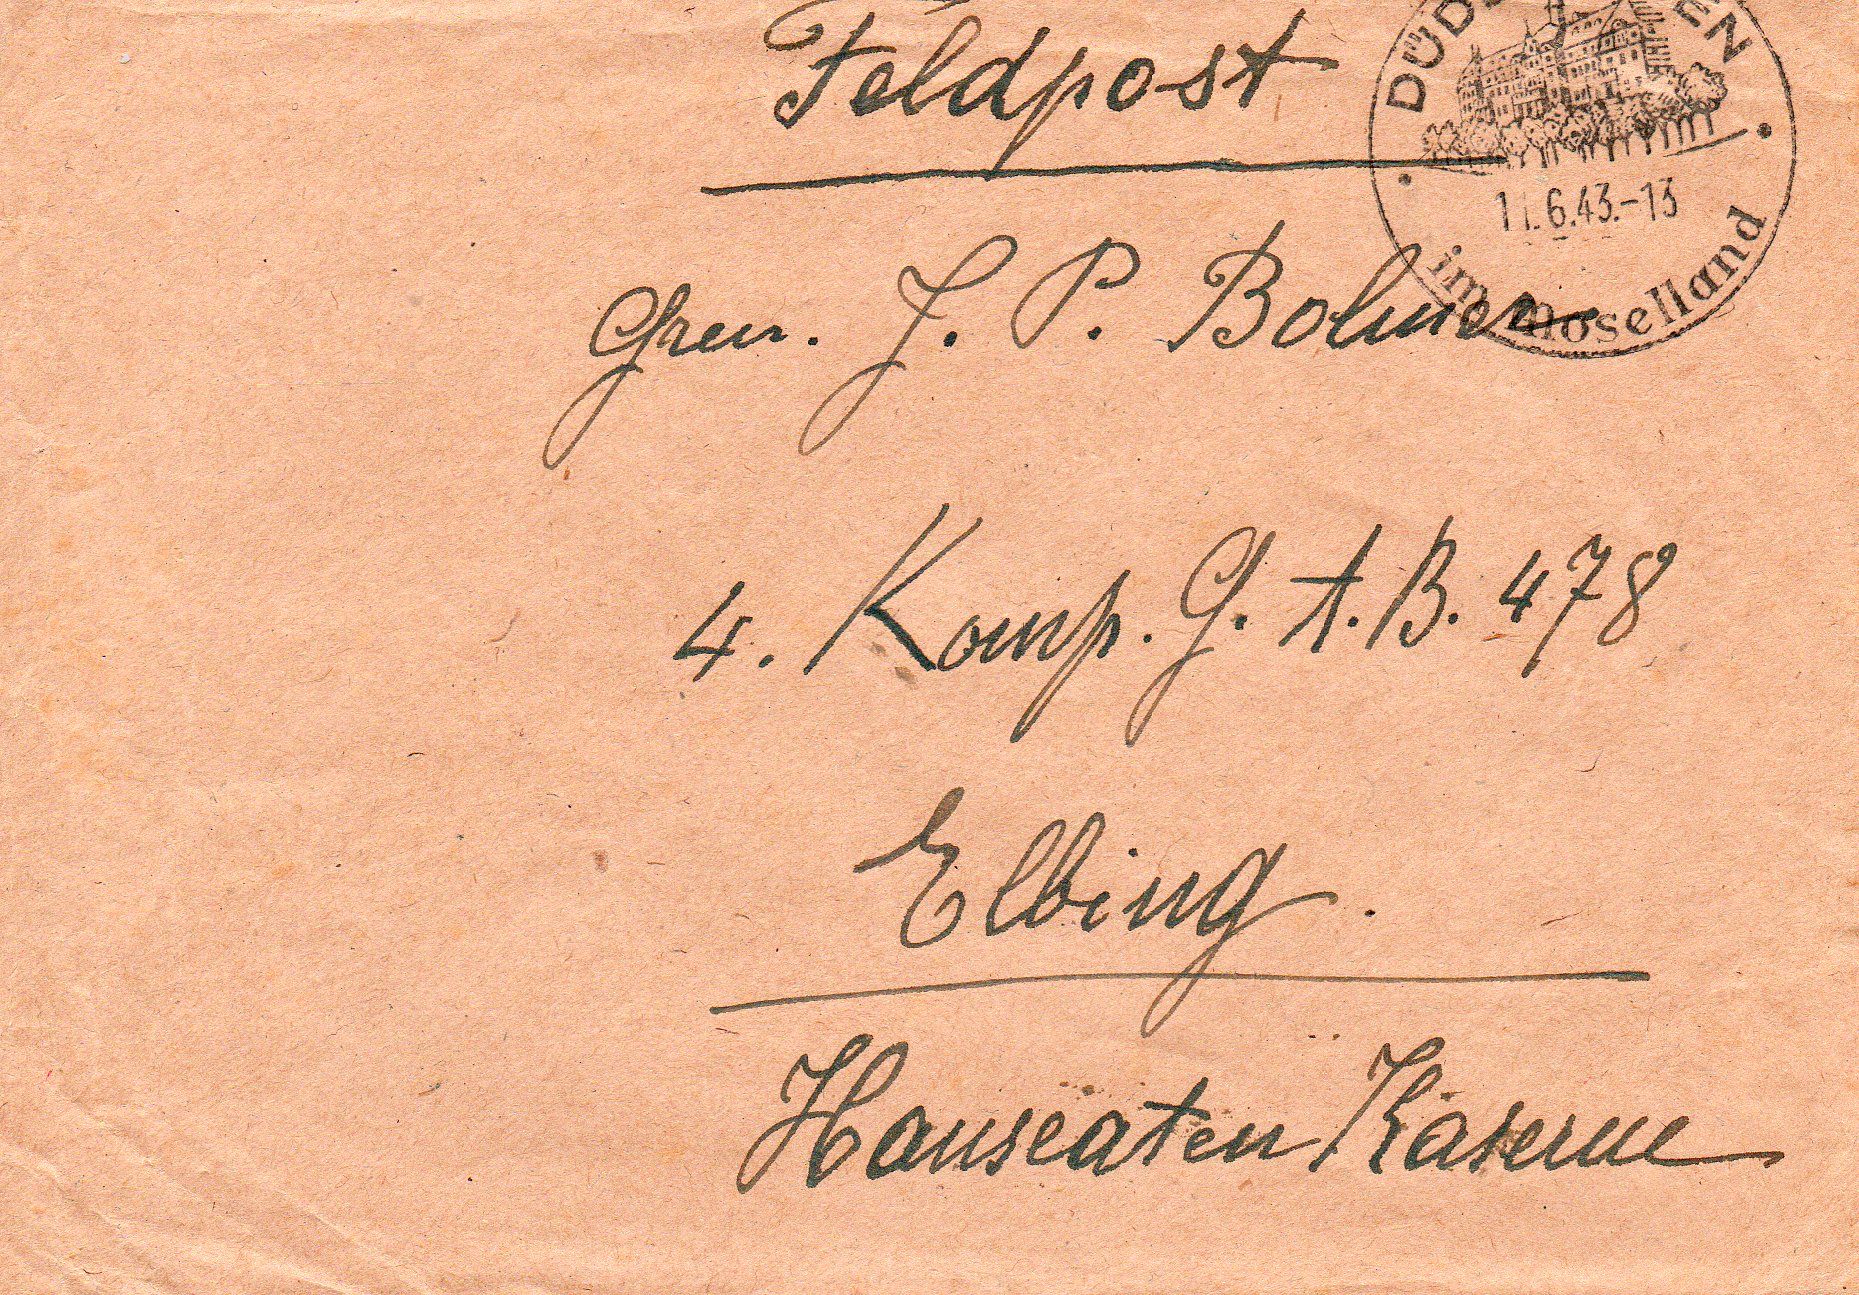 Feldpost
DÜD EN
11.6.43.-13
im Moselland
Gren. J. P.
4. Komp. G. A. B. 478
Elbing
Hanseaten Kaserne